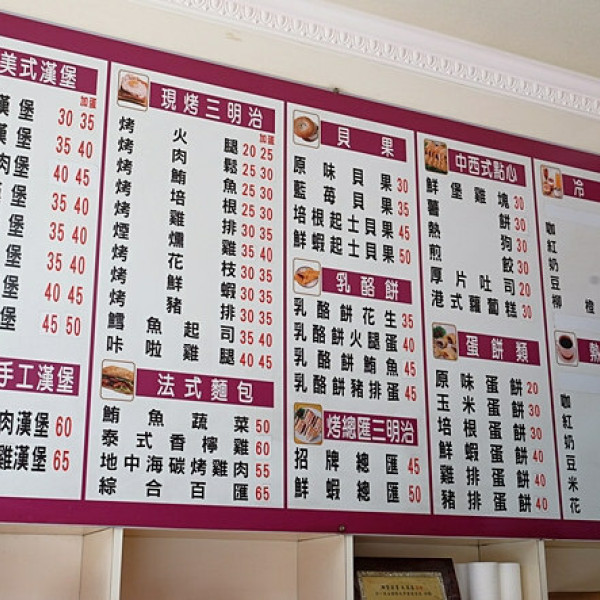 美式漢堡
加蛋
漢堡 30 35
堡 35 40
肉堡 40 45
堡 35 40
堡 35 40
堡 35 40
堡 40 45
堡 45 50
手工漢堡
肉漢堡 60
雞漢堡 65
現烤三明治
加蛋
烤火腿 20 25
烤肉鬆 25 30
烤鮪魚 25 30
烤培根 30 35
烤雞排 30 35
煙燻雞 30 35
烤花枝 30 35
烤鮮蝦 30 35
烤豬排 30 35
鱈魚起司 35 40
咔啦雞腿 40 45
法式麵包
鮪魚蔬菜 50
泰式香檸雞 60
地中海碳烤雞肉 55
綜合百匯 65
貝果
原味貝果 30
藍莓貝果 35
培根起士貝果 45
鮮蝦起士貝果 50
乳酪餅
乳酪餅花生 35
乳酪餅火腿蛋 40
乳酪餅鮪魚 45
乳酪餅豬排蛋 45
烤總匯三明治
招牌總匯 45
鮮蝦總匯 50
中西式點心
鮮堡雞塊 30
薯餅
熱狗 30
煎餃 30
厚片吐司 20
港式蘿蔔糕 30
蛋餅類
原味蛋餅 20
玉米蛋餅 30
培根蛋餅 30
鮮蝦蛋餅 40
雞排蛋餅 40
豬排蛋餅 40
冷
咖
紅
奶
豆
柳橙
熱
咖
紅
奶
豆
米
花